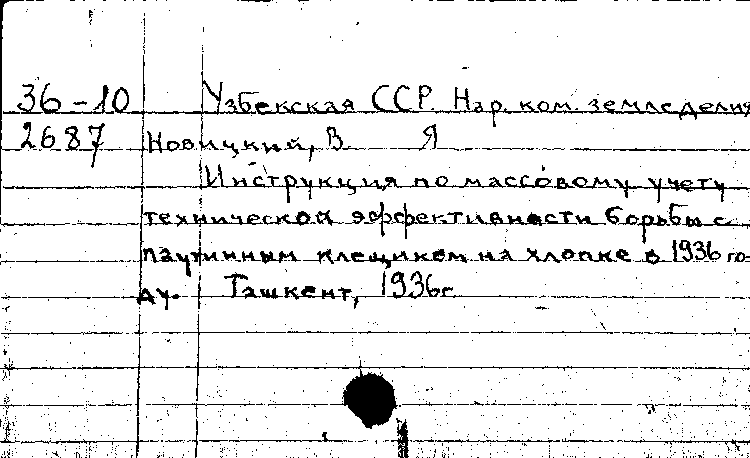 36-10 Узбекская ССР. Нар. ком. земледелия
2687 Новицкий, В. Я
Инструкция по массовому учету
технической эффективности борьбы с
паутинным клещиком на хлопке в 1936 го-
ду. Ташкент, 1936г.